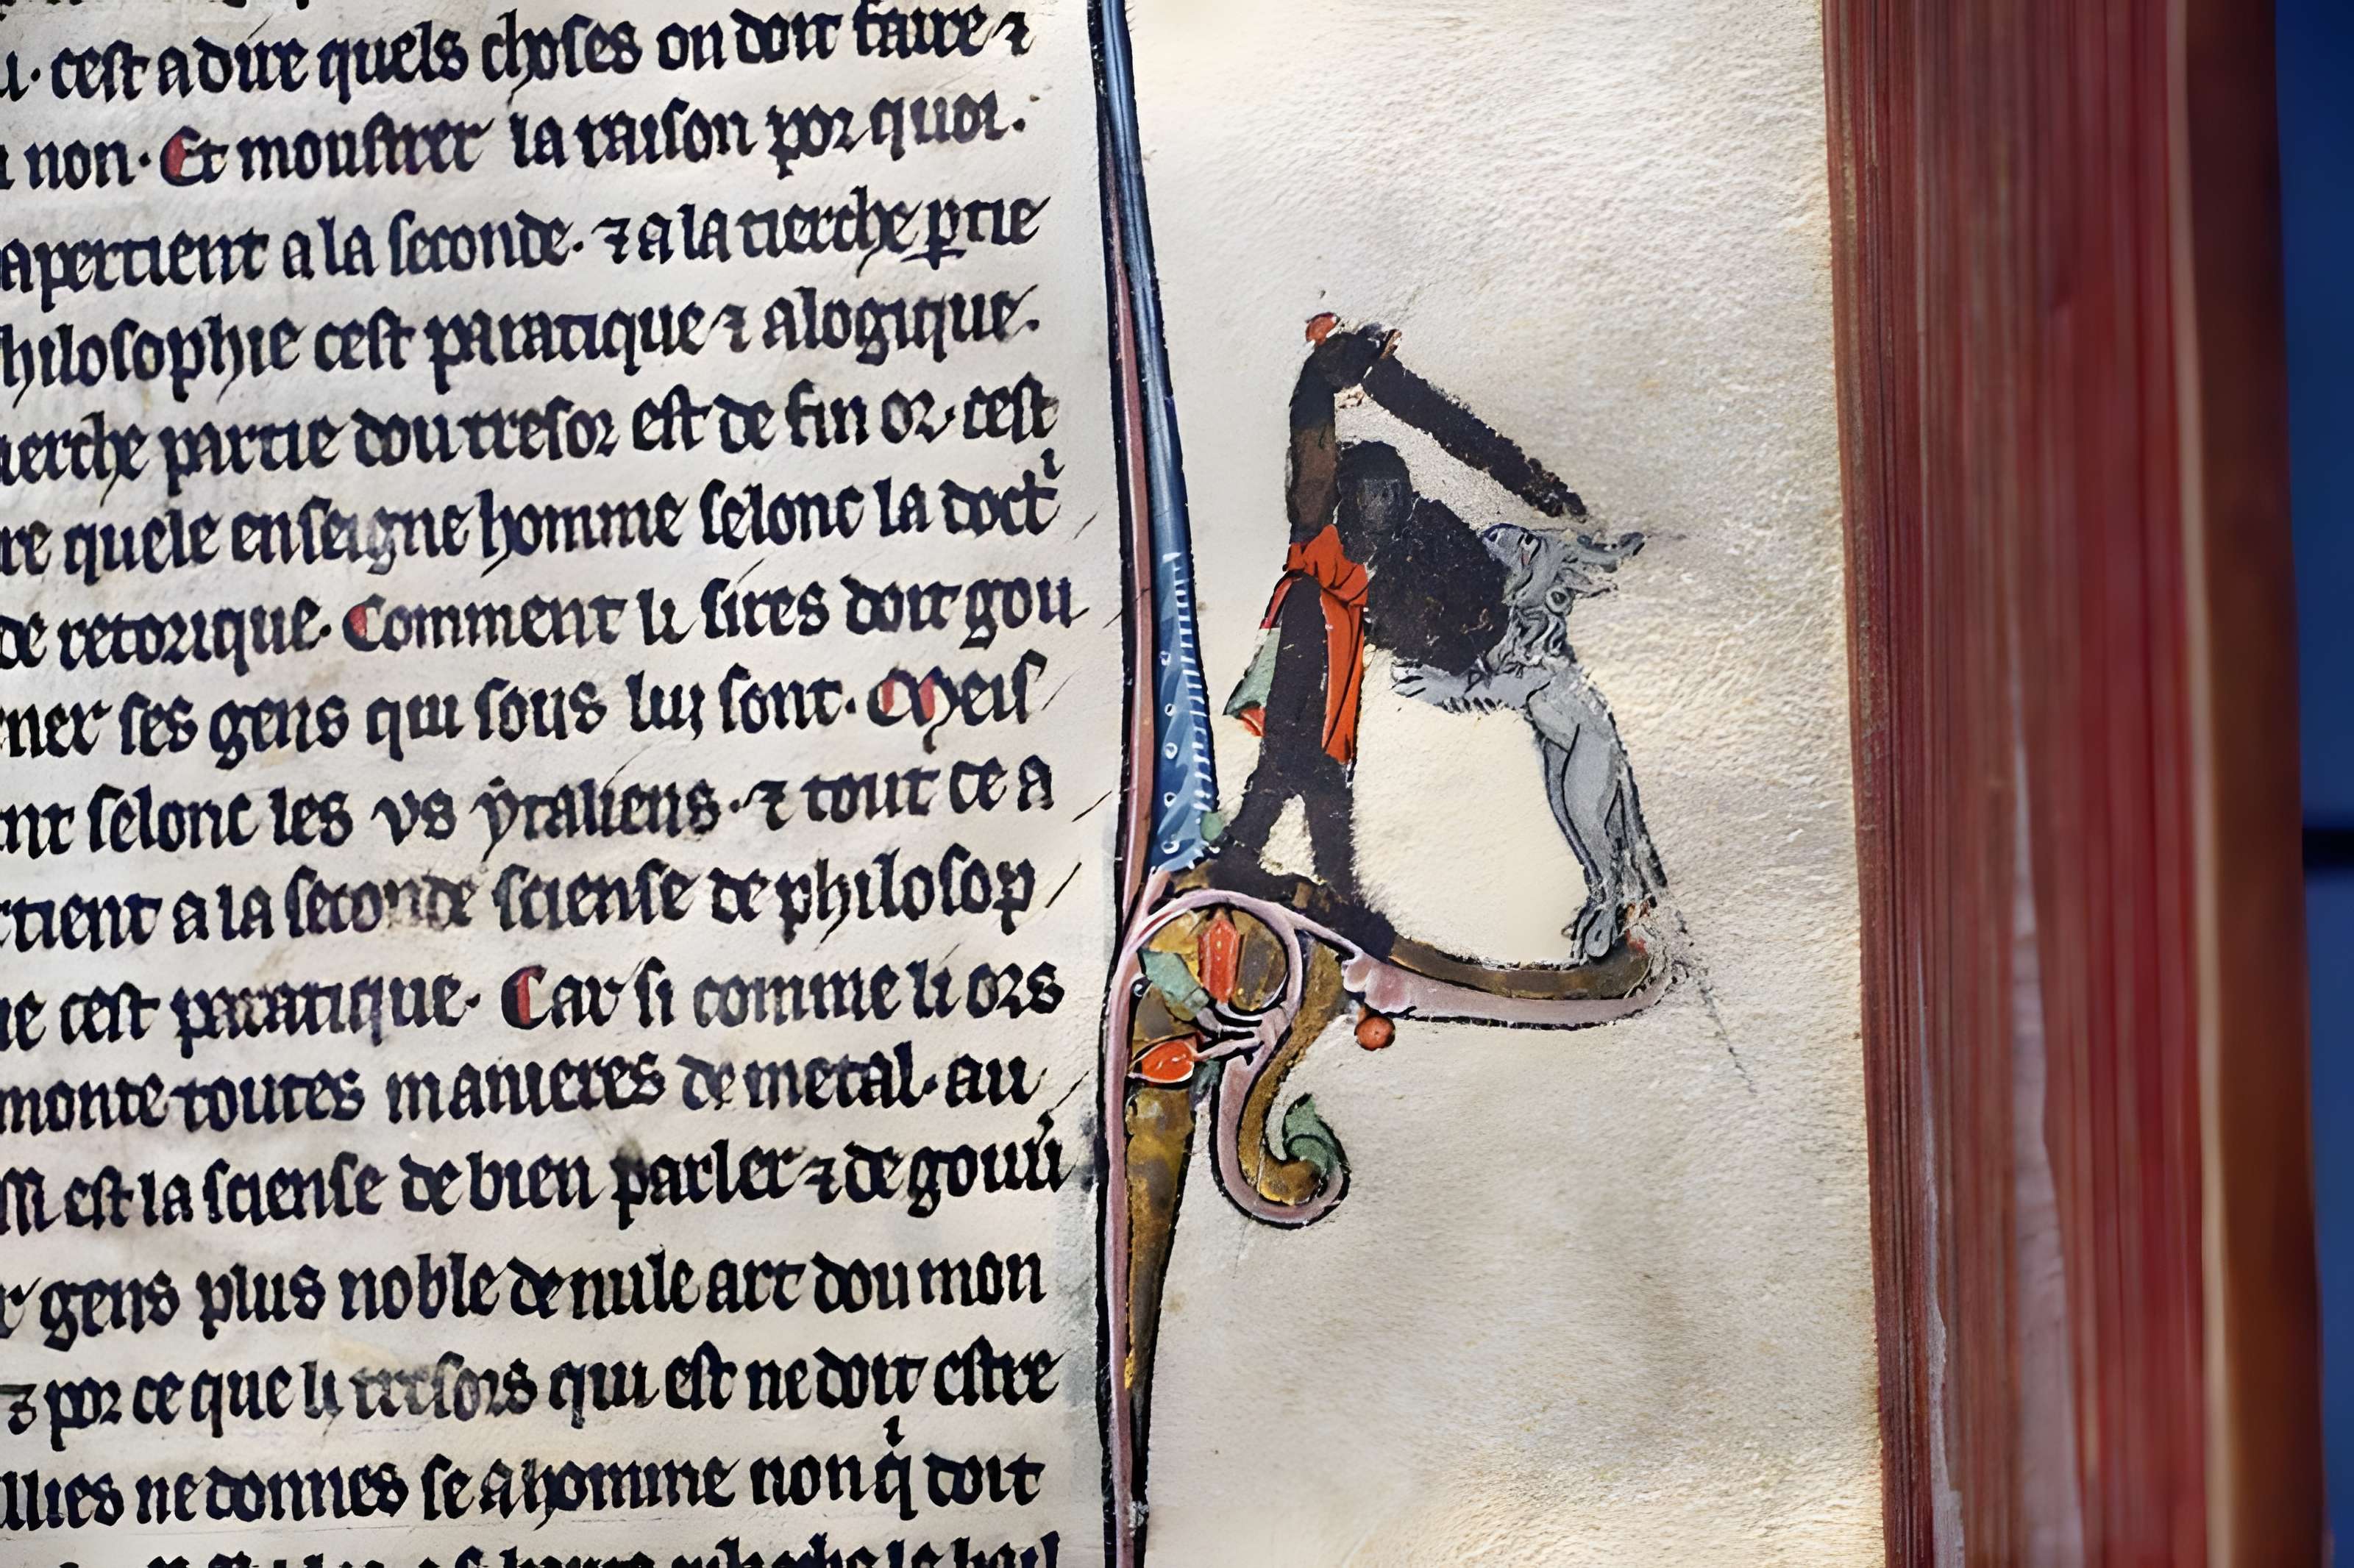 cest a dire quels choses on doit faire ⁊
non. Et moustrer la raison por quoi.
apertient a la seconde. ⁊ a la tierche ptie
hilosophie cest paratique ⁊ a logique.
ierche partie dou tresor est de fin or. cest
re quele enseigne homme selonc la doctⁱ
de retorique. Comment li sires doit gou
ner ses gens qui sous lui sont. Meis
nt selonc les vs ytaliens. ⁊ tout ce a
rtient a la seconde sciense de philosop
ie cest paratique. Car si comme li ors
monte toutes manieres de metal. au
si est la sciense de bien parler ⁊ de gouu͛
r gens plus noble de nule art dou mon
⁊ por ce que li tresors qui est ne doit estre
llies ne donnes se a homme non q̇ doit